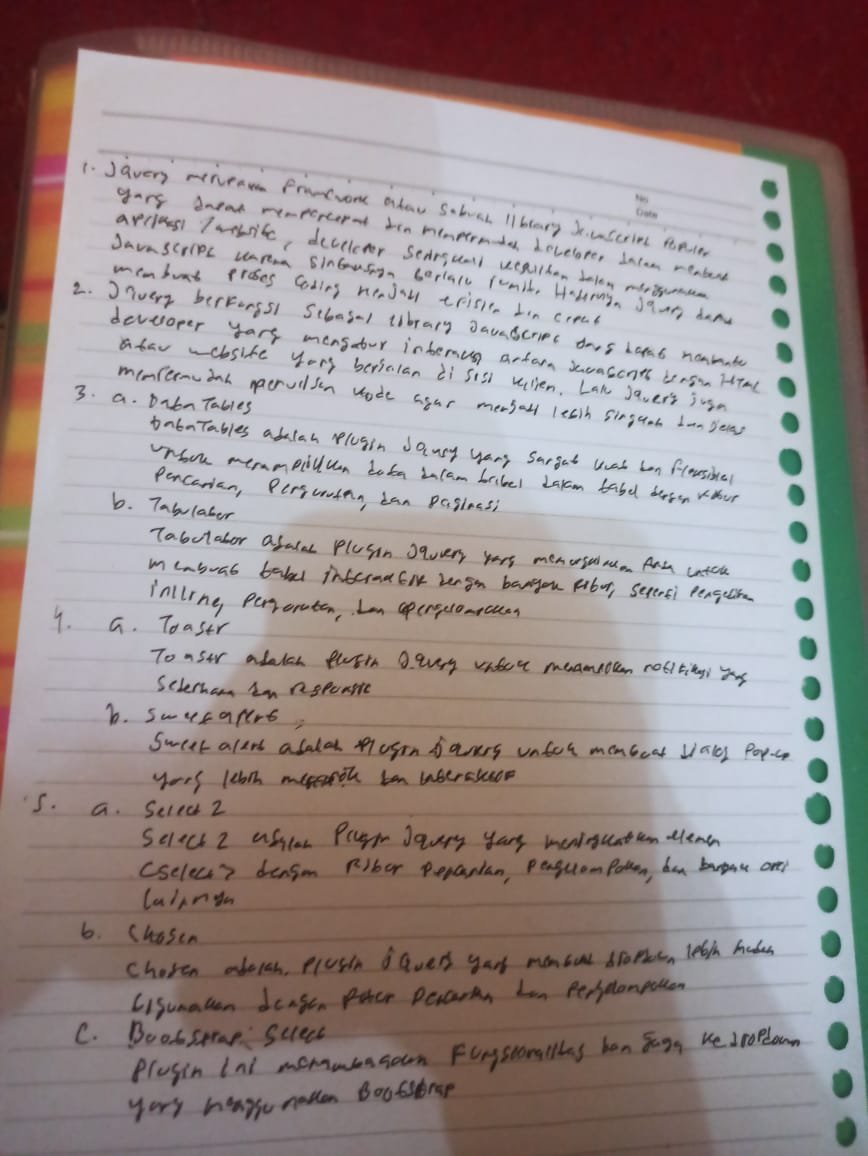 No
Date
1. Jquery merupakan Framework atau sebuah library Javascript Populer
yang dapat mempercepat dan mempermudah developer dalam membuat
aplikasi / website, developer sering kali kesulitan dalam menggunakan
Javascript karena terlalu rumit. Hadirnya Jquery dapat
membuat proses coding menjadi efisien dan cepat
2. Jquery berfungsi sebagai library Javascript yang dapat membantu
developer yang mengatur interaksi antara Javascript dengan HTML
atau website yang berjalan di sisi klien. Lalu Jquery juga
mempermudah penulisan kode agar menjadi lebih singkat dan jelas
3. a. Data Tables
DataTables adalah plugin Jquery yang sangat kuat dan fleksibel
untuk menampilkan data dalam tabel dalam tabel dengan fitur
Pencarian, Pengurutan, dan Paginasi
b. Tabulator
Tabulator adalah Plugin Jquery yang Anda untuk
membuat tabel interaktif dengan banyak fitur, seperti Pengeditan
inline, Pengurutan, dan pengelompokan
4. a. Toastr
Toastr adalah plugin Jquery untuk menampilkan notifikasi yang
Sederhana dan responsif
b. Sweet alert
Sweet alert adalah plugin Jquery untuk membuat dialog Pop-up
yang lebih menarik dan interaktif
5. a. Select 2
Select 2 adalah Plugin Jquery yang meningkatkan elemen
<select> dengan fitur Pencarian, Pengelompokan, dan banyak opsi
lainnya
b. Chosen
Chosen adalah Plugin Jquery yang membuat dropdown lebih mudah
digunakan dengan fitur Pencarian dan Pengelompokan
C. Bootstrap Select
Plugin ini menambahkan Fungsionalitas dan gaya ke dropdown
yang menggunakan Bootstrap